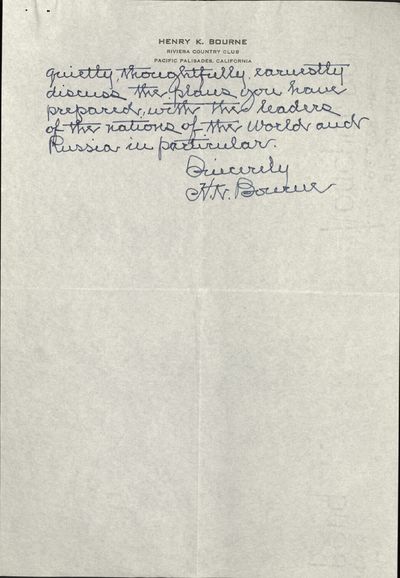 HENRY K. BOURNE
RIVIERA COUNTRY CLUB
PACIFIC PALISADES, CALIFORNIA
quietly, thoughtfully, earnestly
discuss the plans you have
prepared, with the leaders
of the nations of the World and
Russia in particular.
Sincerely
H.K. Bourne